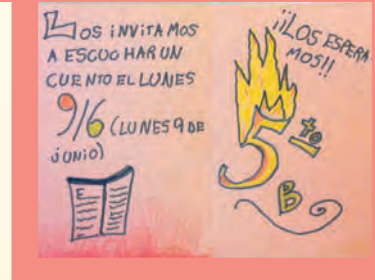 LOS INVITAMOS
A ESCUCHAR UN
CUENTO EL LUNES
9/6 (LUNES 9 DE
JUNIO)
¡¡LOS ESPERA
MOS!!
5to
B